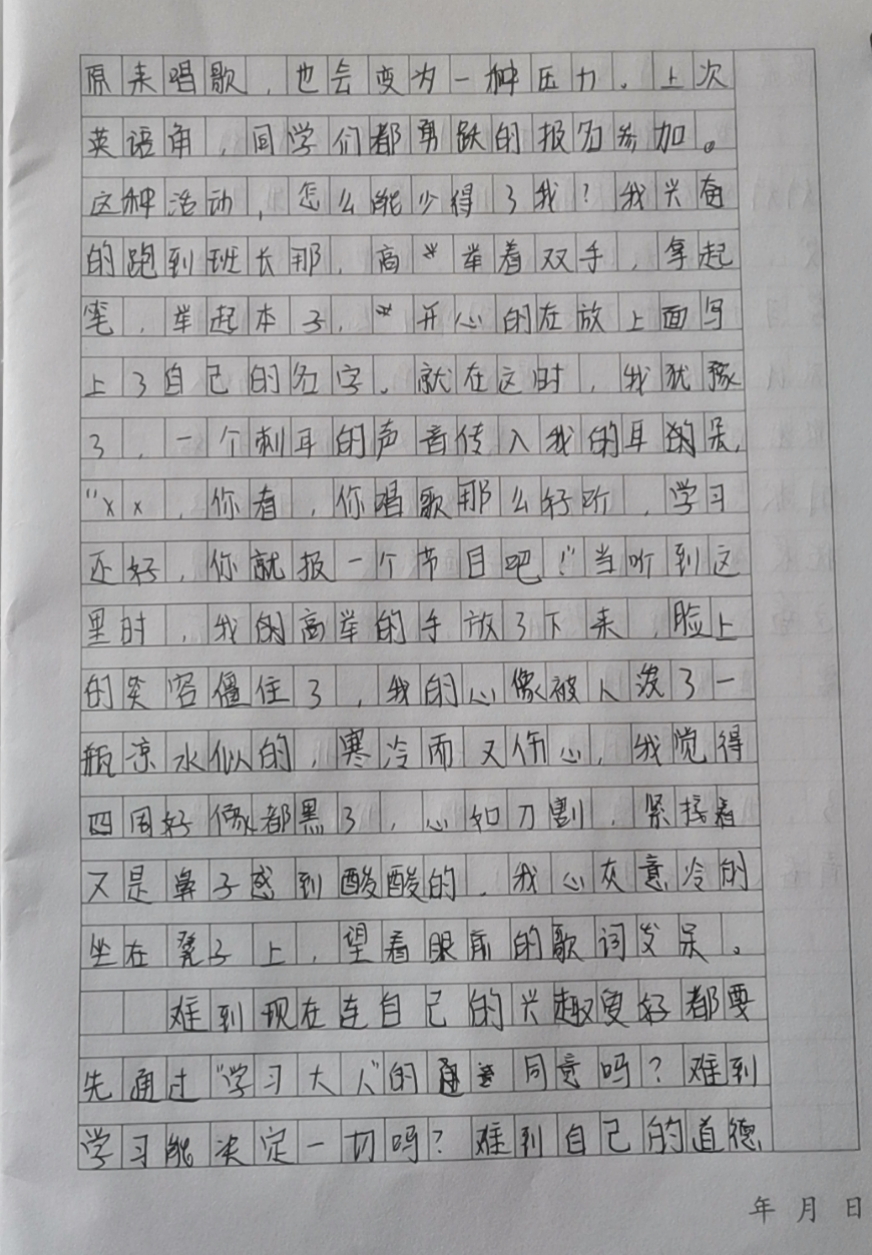 原来唱歌，也会变为一种压力。上次
英语角，同学们都勇跃的报名参加。
这种活动，怎么能少得了我？我兴奋
的跑到班长那，高举着双手，拿起
笔，举起本子，开心的在放上面写
上了自己的名字。就在这时，我犹豫
了，一个刺耳的声音传入我的耳的呆，
“××，你看，你唱歌那么好听，学习
还好，你就报一个节目吧！”当听到这
里时，我的高举的手放了下来，脸上
的笑容僵住了，我的心像被人泼了一
瓶凉水似的，寒冷而又伤心，我觉得
四周好像都黑了，心如刀割，紧接着
又是鼻子感到酸酸的，我心灰意冷的
坐在凳子上，望着眼前的歌词发呆。
难到现在连自己的兴趣爱好都要
先通过“学习大人”的同意吗？难到
学习能决定一切吗？难到自己的道德
年 月 日